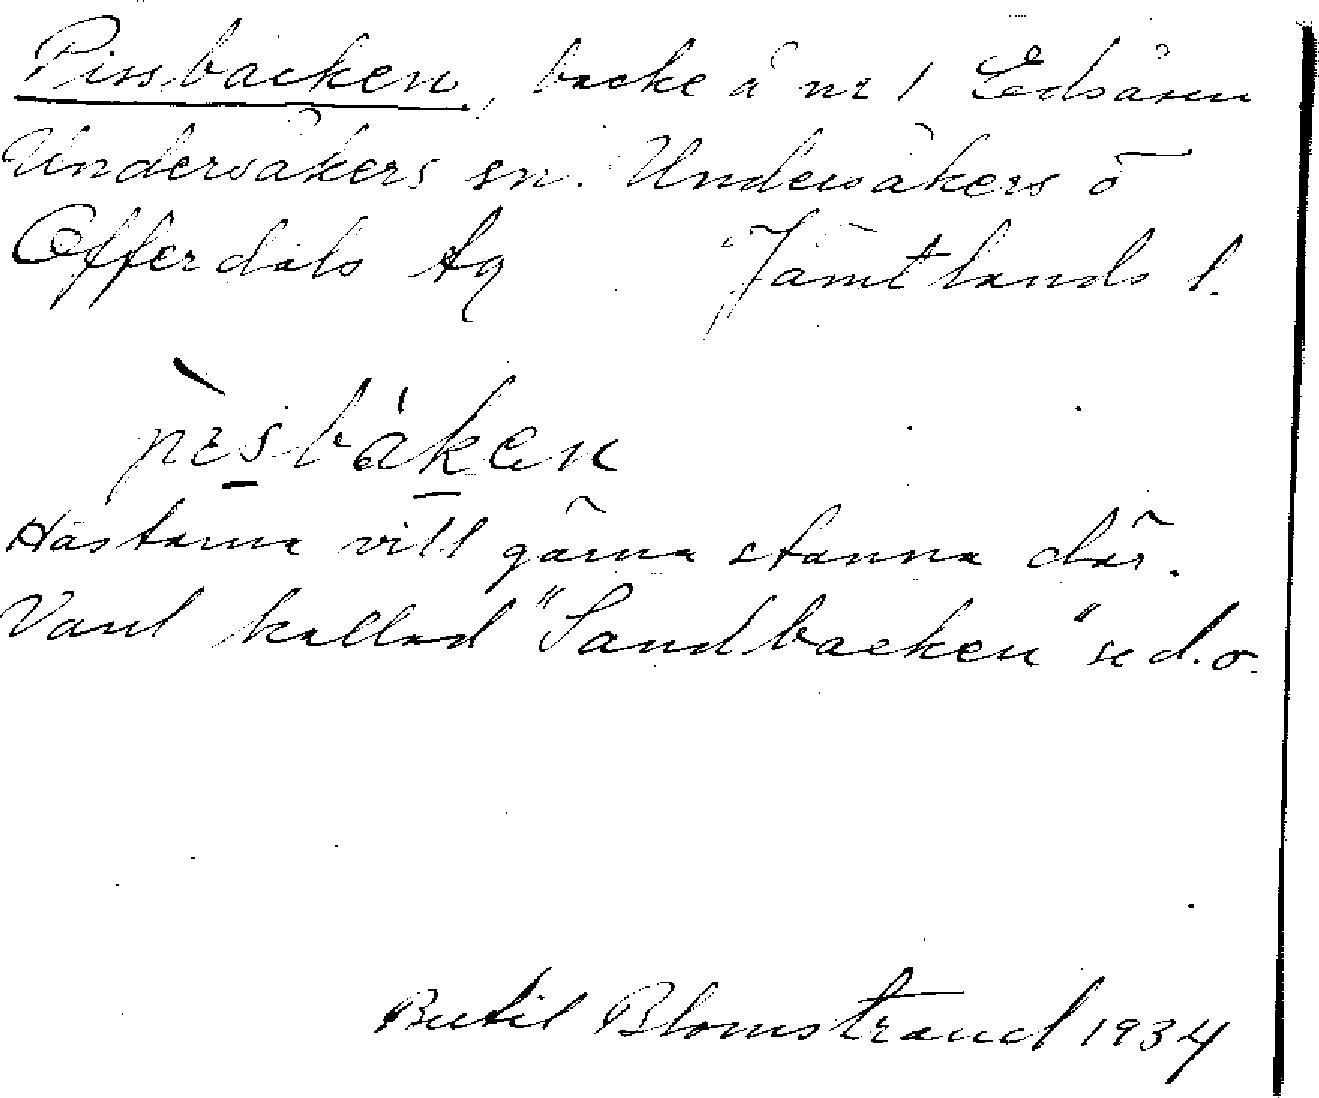 Pissbacken, backe å nr 1 Edsåsen
Undersåkers sn. Undersåkers o
Offerdals tg Jämtlands l.
pèsbáken
Hästarna vill gärna stanna där.
Vanl kallad "Sandbacken" se d.o.
Bertil Blomstrand 1934